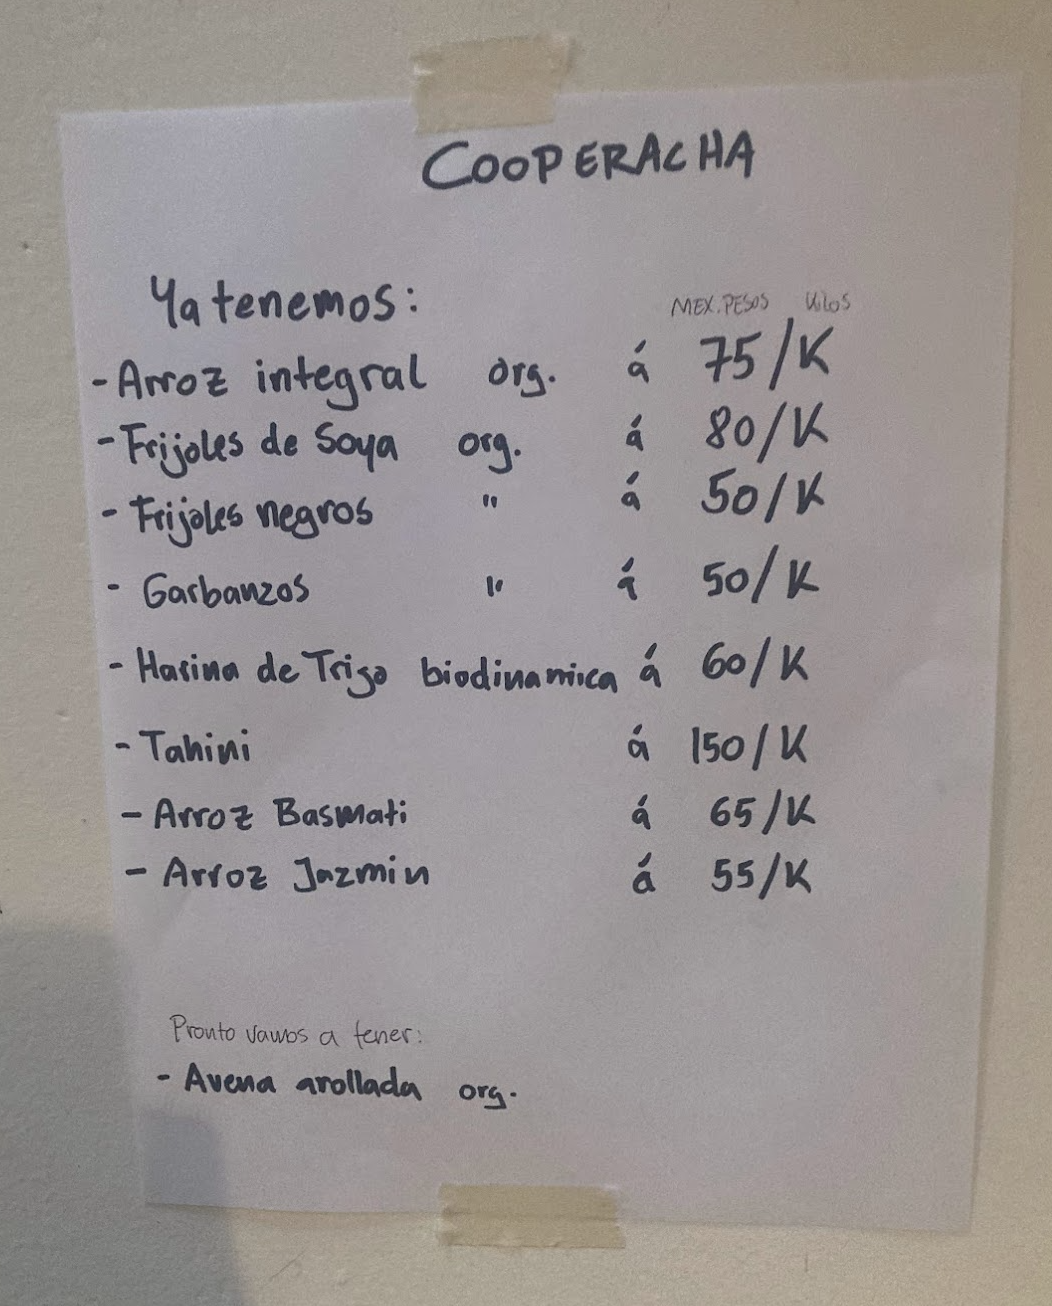 COOPERACHA
Ya tenemos:
MEX. PESOS Kilos
- Arroz integral org. á 75/K
- Frijoles de Soya org. á 80/K
- Frijoles negros " á 50/K
- Garbanzos " á 50/K
- Harina de Trigo biodinamica á 60/K
- Tahini á 150/K
- Arroz Basmati á 65/K
- Arroz Jazmin á 55/K
Pronto vamos a tener:
- Avena arollada org.